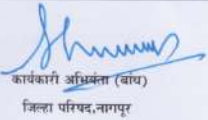 कार्यकारी अभियंता (बांध)
जिल्हा परिषद,नागपूर